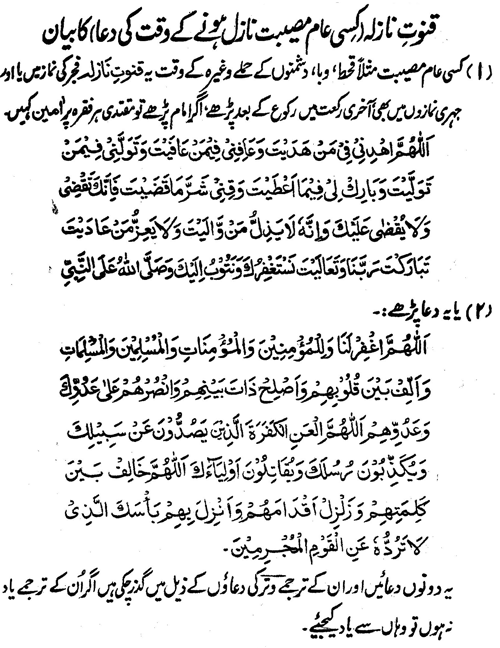 قنوتِ نازلہ (کسی عام مصیبت نازل ہونے کے وقت کی دعا) کا بیان
(۱) کسی عام مصیبت مثلاً قحط، وبا، دشمنوں کے حملے وغیرہ کے وقت یہ قنوتِ نازلہ فجر کی نماز میں یا اور
جہری نمازوں میں بھی آخری رکعت میں رکوع کے بعد پڑھے، اگر امام پڑھے تو مقتدی ہر فقرہ پر آمین کہیں۔
اَللّٰهُمَّ اهْدِنِيْ فِيْ مَنْ هَدَيْتَ وَعَافِنِيْ فِيْمَنْ عَافَيْتَ وَتَوَلَّنِيْ فِيْمَنْ
تَوَلَّيْتَ وَبَارِكْ لِيْ فِيْمَا اَعْطَيْتَ وَقِنِيْ شَرَّ مَا قَضَيْتَ فَاِنَّكَ تَقْضِيْ
وَلَا يُقْضٰى عَلَيْكَ وَاِنَّهٗ لَا يَذِلُّ مَنْ وَّالَيْتَ وَلَا يَعِزُّ مَنْ عَادَيْتَ
تَبَارَكْتَ رَبَّنَا وَتَعَالَيْتَ نَسْتَغْفِرُكَ وَنَتُوْبُ اِلَيْكَ وَصَلَّى اللّٰهُ عَلَى النَّبِيِّ
(۲) یا یہ دعا پڑھے:۔
اَللّٰهُمَّ اغْفِرْ لَنَا وَلِلْمُؤْمِنِيْنَ وَالْمُؤْمِنَاتِ وَالْمُسْلِمِيْنَ وَالْمُسْلِمَاتِ
وَاَلِّفْ بَيْنَ قُلُوْبِهِمْ وَاَصْلِحْ ذَاتَ بَيْنِهِمْ وَانْصُرْهُمْ عَلٰى عَدُوِّكَ
وَعَدُوِّهِمْ اَللّٰهُمَّ الْعَنِ الْكَفَرَةَ الَّذِيْنَ يَصُدُّوْنَ عَنْ سَبِيْلِكَ
وَيُكَذِّبُوْنَ رُسُلَكَ وَيُقَاتِلُوْنَ اَوْلِيَآءَكَ اَللّٰهُمَّ خَالِفْ بَيْنَ
كَلِمَتِهِمْ وَزَلْزِلْ اَقْدَامَهُمْ وَاَنْزِلْ بِهِمْ بَأْسَكَ الَّذِيْ
لَا تَرُدُّهٗ عَنِ الْقَوْمِ الْمُجْرِمِيْنَ۔
یہ دونوں دعائیں اور ان کے ترجمے وتر کی دعاؤں کے ذیل میں گذر چکی ہیں اگر اُن کے ترجمے یاد
نہ ہوں تو وہاں سے یاد کیجئے۔